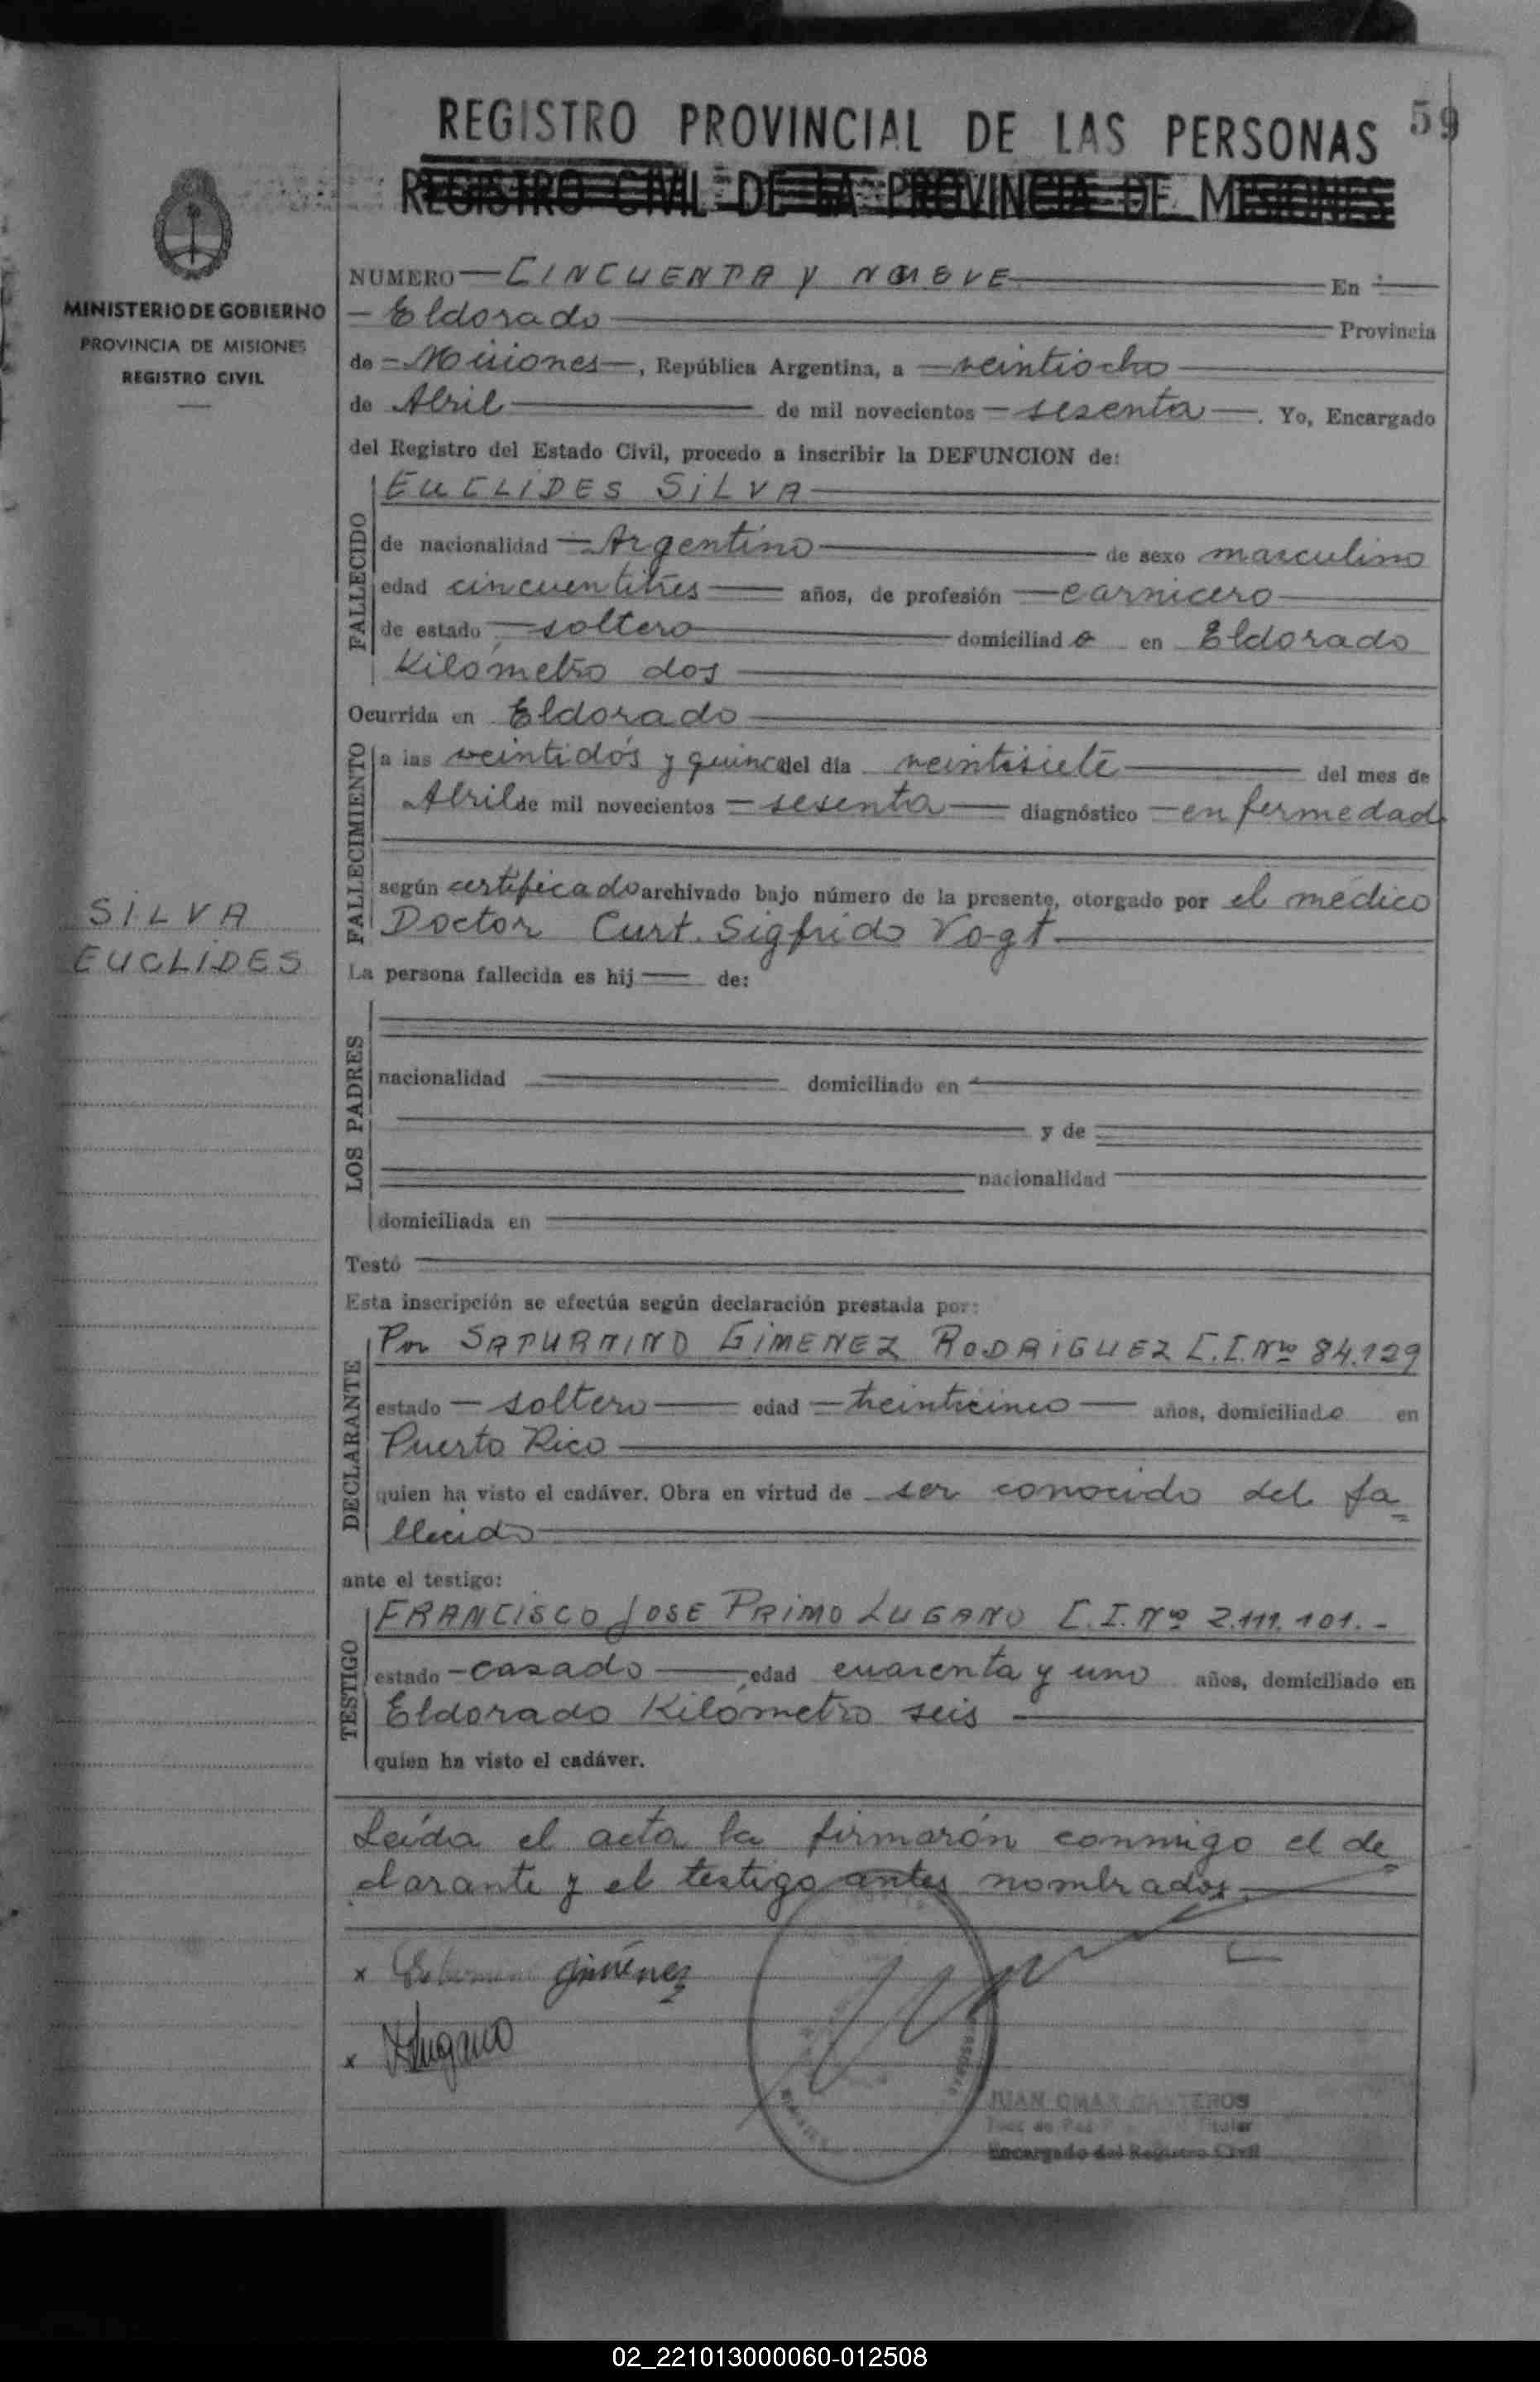 59
REGISTRO PROVINCIAL DE LAS PERSONAS
REGISTRO CIVIL DE LA PROVINCIA DE MISIONES
MINISTERIO DE GOBIERNO
PROVINCIA DE MISIONES
REGISTRO CIVIL
SILVA
EUCLIDES
NUMERO CINCUENTA y NUEVE En
Eldorado Provincia
de Misiones, República Argentina, a veintiocho
de Abril de mil novecientos sesenta. Yo, Encargado
del Registro del Estado Civil, procedo a inscribir la DEFUNCION de:
FALLECIDO
EUCLIDES SILVA
de nacionalidad Argentino de sexo masculino
edad cincuentitres años, de profesión carnicero
de estado soltero domiciliado en Eldorado
Kilómetro dos
Ocurrida en Eldorado
FALLECIMIENTO
a las veintidós y quince del día veintisiete del mes de
Abril de mil novecientos sesenta diagnóstico enfermedad
según certificado archivado bajo número de la presente, otorgado por el médico
Doctor Curt. Sigfrido Vogt
La persona fallecida es hij de:
LOS PADRES
nacionalidad domiciliado en
y de
nacionalidad
domiciliada en
Testó
Esta inscripción se efectúa según declaración prestada por:
DECLARANTE
Por SATURNINO GIMENEZ RODRIGUEZ C.I.Nº 84.129
estado soltero edad treinticinco años, domiciliado en
Puerto Rico
quien ha visto el cadáver. Obra en virtud de ser conocido del fa=
llecido
ante el testigo:
TESTIGO
FRANCISCO JOSE PRIMO LUGANO C.I.Nº 2.111.101.-
estado casado edad cuarenta y uno años, domiciliado en
Eldorado Kilómetro seis
quien ha visto el cadáver.
Leída el acta la firmarón conmigo el de=
clarante y el testigo antes nombrados.
x Gimenez
x Lugano
JUAN OMAR
Juez de Paz Titular
Encargado del Registro Civil
02_221013000060-012508